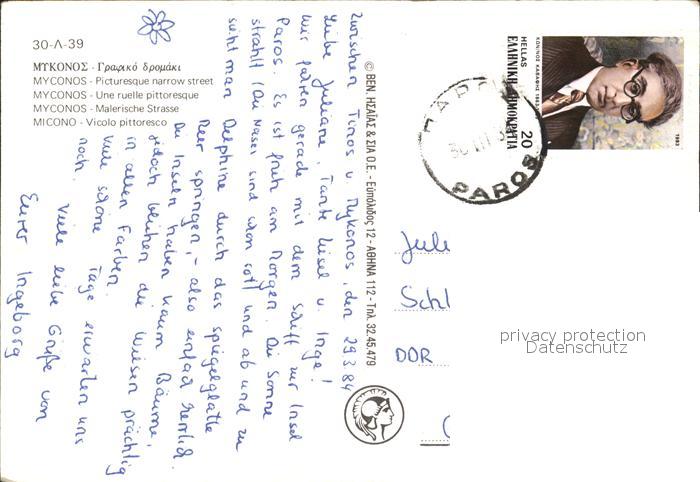 30-Λ-39
ΜΥΚΟΝΟΣ - Γραφικό δρομάκι
MYCONOS - Picturesque narrow street
MYCONOS - Une ruelle pittoresque
MYCONOS - Malerische Strasse
MICONO - Vicolo pittoresco
Zwischen Tinos u. Mykonos, den 29.3.84
Liebe Juliane, Tante Liesel u. Inge!
Wir fahren gerade mit dem Schiff zur Insel
Paros. Es ist früh am Morgen. Die Sonne
strahlt (die Nasen sind schon rot) und ab und zu
sieht man Delphine durch das spiegelglatte
Meer springen, - also einfach herrlich.
Die Inseln haben kaum Bäume,
jedoch blühen die Wiesen prächtig
in allen Farben.
Viele schöne Tage erwarten uns
noch.
Viele liebe Grüße von
Eurer Ingeborg
© ΒΕΝ. ΗΣΑΪΑΣ & ΣΙΑ Ο.Ε. - Ευπόλιδος 12 - ΑΘΗΝΑ 112 - Τηλ. 32.45.479
HELLAS
ΕΛΛΗΝΙΚΗ ΔΗΜΟΚΡΑΤΙΑ
20
1983
PAROS
Jul
Schl
DDR
privacy protection
Datenschutz